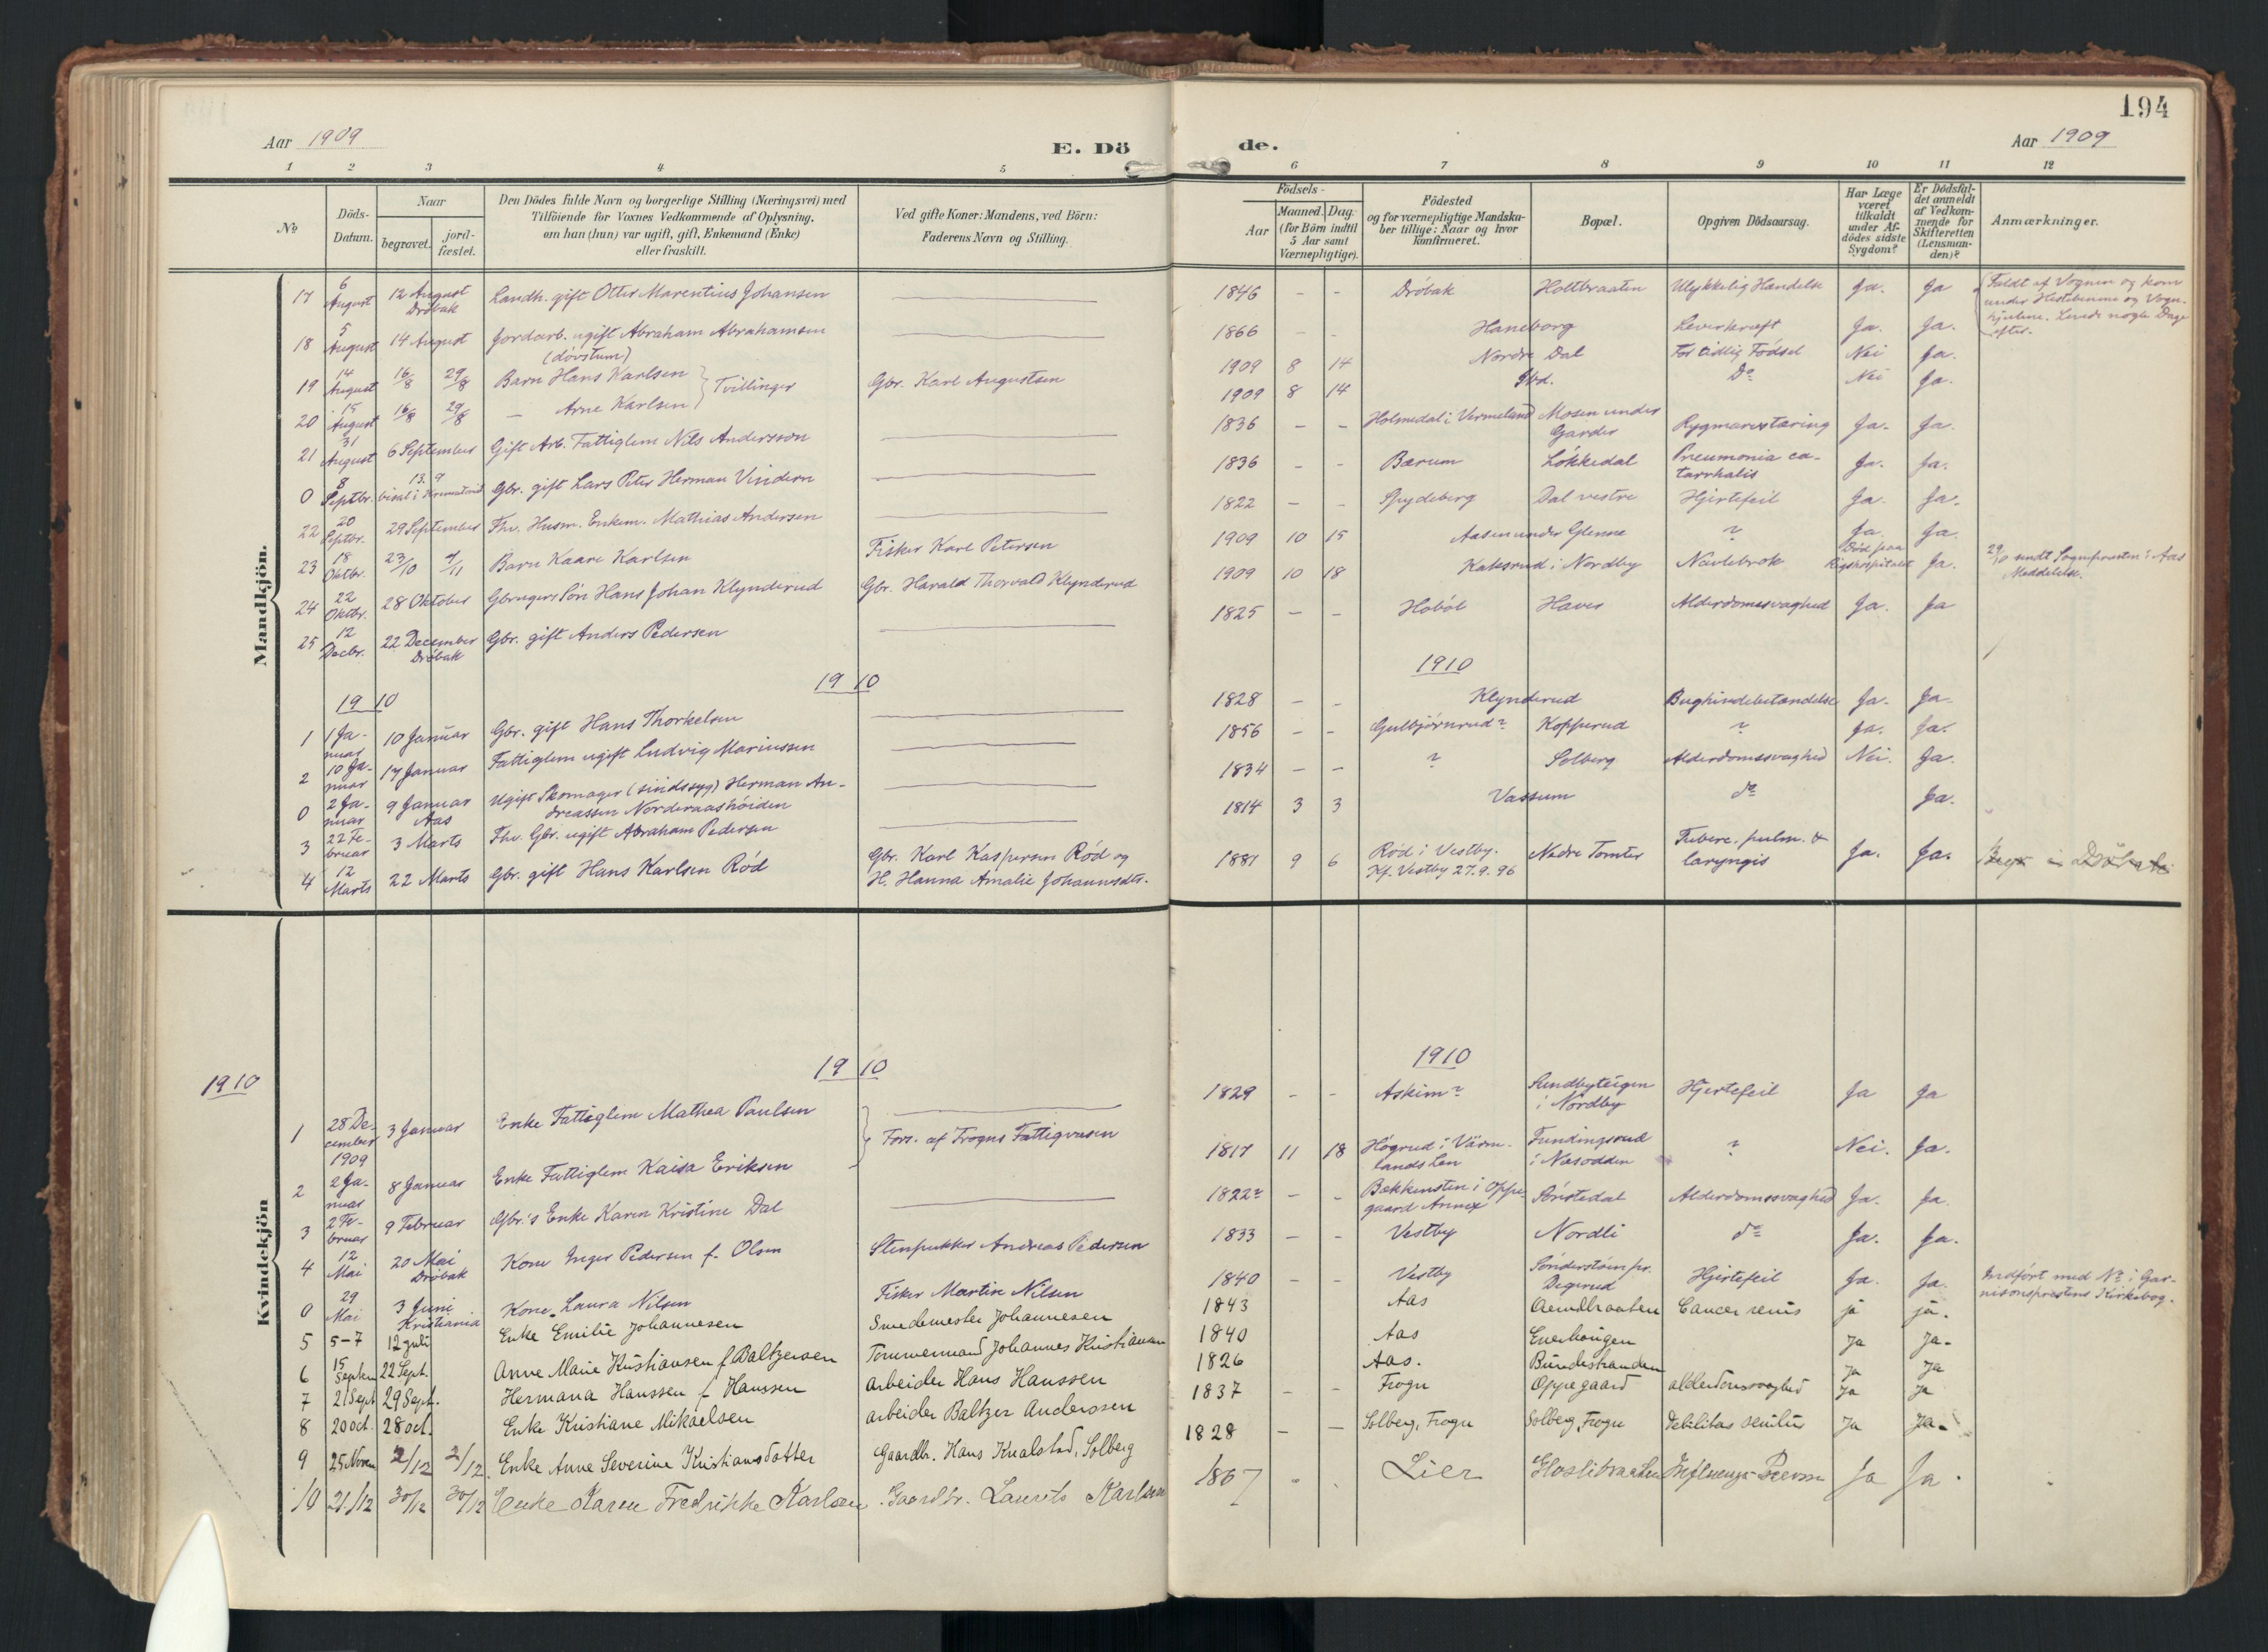 194
Aar 1909
E. Dö de.
Aar 1909
1 2 3 4 5 6 7 8 9 10 11 12
No
Döds-Datum.
Naar
begravet.
jord-fæstet.
Den Dödes fulde Navn og borgerlige Stilling (Næringsvei) med
Tilföiende for Voxnes Vedkommende af Oplysning,
om han (hun) var ugift, gift, Enkemand (Enke)
eller fraskilt.
Ved gifte Koner: Mandens, ved Börn:
Faderens Navn og Stilling.
Födsels-
Aar
Maaned. Dag.
(for Börn indtil
5 Aar samt
Værnepligtige).
Födested
og for værnepligtige Mandska-
ber tillige: Naar og hvor
konfirmeret.
Bopæl.
Opgiven Dödsaarsag.
Har Læge
været
tilkaldt
under Af-
dödes sidste
Sygdom?
Er Dödsfal-
det anmeldt
af Vedkom-
mende for
Skifteretten
(Lensman-
den)?
Anmærkninger.
Mandkjön.
17 6 August 12 August Dröbak Landh. gift Otter Marentius Johansen — 1846 - - Dröbak Holtbraaten Ulykkelig Hændelse Ja. Ja Faldt af Vognen og kom
under Hestebenene og Vogn-
hjulene. Levede nogle Dage
efter.
18 5 August 14 August Jordarb. ugift Abraham Abrahamsen (dövstum) — 1866 - - Haneborg Leverkræft Ja. Ja.
19 14 August 16/8 29/8 Barn Hans Karlsen } Tvillinger Gbr. Karl Augustsen 1909 8 14 Nordre Dal For tidlig Födsel Nei Ja.
20 15 August 16/8 29/8 — Arne Karlsen 1909 8 14 Ibd. Do Nei Ja.
21 31 August 6 September Gift Arb. Fattiglem Nils Andersson — 1836 - - Holmedal i Vermeland Mosen under Garder Rygmarvstæring Ja. Ja.
0 8 Septbr. 13.9 i Krematoriet Gbr. gift Lars Peter Herman Vindern — 1836 - - Bærum Lökkedal Pneumonia ca-
tarrhalis Ja. Ja.
22 20 Septbr. 29 September Fhv. Husm. Enkem. Mathias Andersen — 1822 - - Spydeberg Dal vestre Hjertefeil Ja. Ja.
23 18 Oktbr. 23/10 7/11 Barn Kaare Karlsen Fisker Karl Petersen 1909 10 15 Aasen under Glenne ? Ja. Ja.
24 22 Oktbr. 28 Oktober Gbrugers Sön Hans Johan Klynderud Gbr. Harald Thorvald Klynderud 1909 10 18 Katesrud i Nordby Navlebrok Död paa Rigshospitalet Ja. 29/10 sendt Sognepresten i Aas
Meddelelse.
25 12 Decbr. 22 December Dröbak Gbr. gift Anders Pedersen — 1825 - - Haböl Haver Alderdomssvaghed Ja. Ja
1910 1910 1910
1 1 Januar 10 Januar Gbr. gift Hans Thorkelsen — 1828 - - Klynderud Bughindebetændelse Ja. Ja.
2 10 Januar 17 Januar Fattiglem ugift Ludvig Mariussen — 1856 - - Gulbjörnrud? Kopperud ? Ja. Ja.
0 2 Januar 9 Januar Aas Ugift Skomager (sindssyg) Herman An-
dreassen Norderaashöiden — 1834 - - ? Solberg Alderdomssvaghed Nei. Ja.
3 22 Februar 3 Marts Fhv. Gbr. ugift Abraham Pedersen — 1814 3 3 Vassum do Ja.
4 12 Marts 22 Marts Gbr. gift Hans Karlsen Röd Gbr. Karl Kaspersen Röd og
H. Hanna Amalie Johannsdtr. 1881 9 6 Röd i Vestby.
Kf. Vestby 27.9.96 Nedre Tomter Tuberc. pulm. &
laryngis Ja. Ja.
Kvindekjön
1910 1910 1910
1 28 December 1909 3 Januar Enke Fattiglem Mathea Paulsen } Fors. af Frogns Fattigvæsen 1829 - - Askim? Sundbyteigen
i Nordby Hjertefeil Ja Ja
2 2 Januar 8 Januar Enke Fattiglem Kaisa Eriksen 1817 11 18 Högrud i Värm-
lands Len Fundingsrud
i Næsodden ? Nei. Ja.
3 2 Februar 9 Februar Gbr.'s Enke Karen Kristine Dal — 1822? - - Bækkensten i Oppe
gaard Annex Sönstedal Alderdomssvaghed Ja. Ja.
4 12 Mai 20 Mai Dröbak Kone Inger Pedersen f. Olsen Stenpukker Andreas Pedersen 1833 - - Vestby Nordli do Ja. Ja.
0 29 Mai 3 Juni Kristiania Kone Laura Nilsen Fisker Martin Nilsen 1840 - - Vestby Sönderstöen pr.
Degerud Hjertefeil Ja. Ja. Indfört med No i Gar-
nisonsprestens Kirkebog.
5 5-7 12 juli Enke Emilie Johannesen Smedemester Johannesen 1843 Aas Cancer renis ja ja.
6 15 Septem 22 Sept. Anne Marie Kristiansen f Baltzersen Tømmermand Johannes Kristiansen 1840 Aas Enerhaugen Ja Ja.
7 21 Sept 29 Sept. Hermana Hanssen f Hanssen Arbeider Hans Hanssen 1826 Aas. Bundestranden Ja Ja
8 20 oct. 28 oct. Enke Kristiane Mikaelsen arbeider Baltzer Anderssen 1837 - - Frogn Oppegaard alderdomssvaghed Ja Ja
9 25 Novem 2/12 2/12 Enke Anne Severine Kristiansdatter Gaardbr. Hans Knalstad, Solberg 1828 - - Solberg, Frogn Solberg, Frogn Debilitas senilis Ja Ja.
10 21/12 30/12 30/12 Enke Karen Fredrikke Karlsen Gaardbr. Laurits Karlsen 1867 Lier Ja Ja.